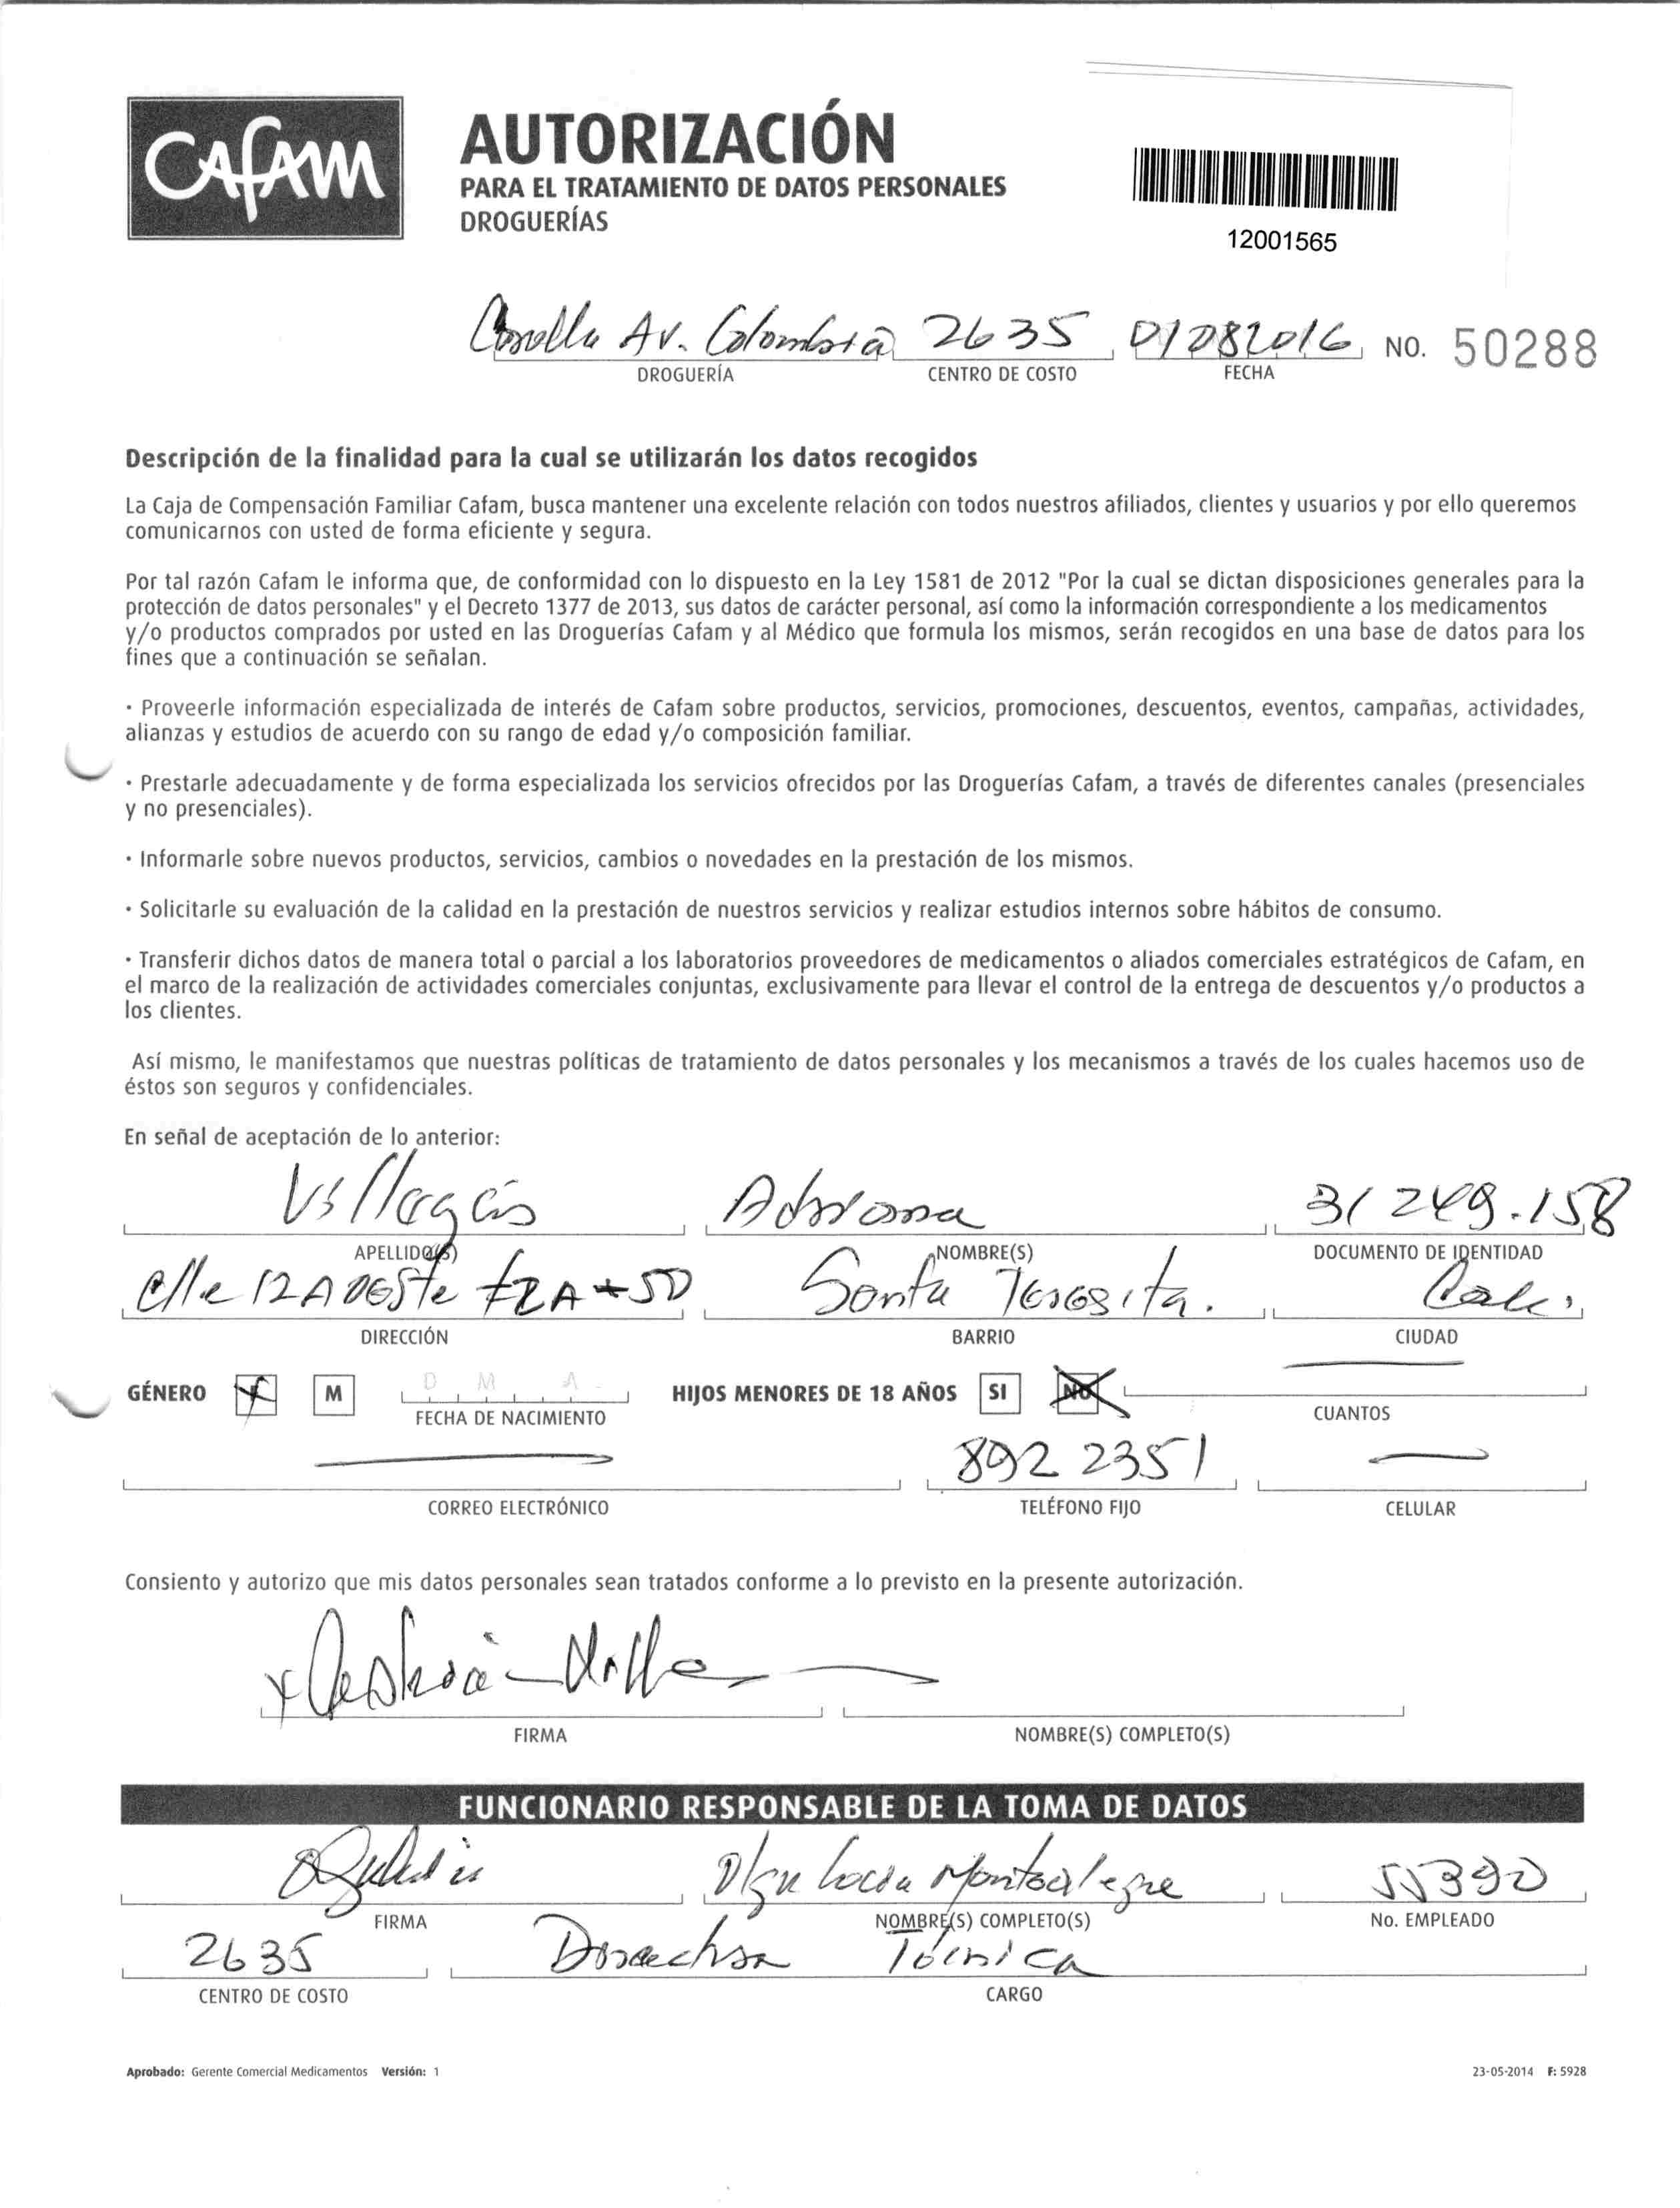 Cafam
AUTORIZACIÓN
PARA EL TRATAMIENTO DE DATOS PERSONALES
DROGUERÍAS
12001565
Av. Colombia 2635 01082016 NO. 50288
DROGUERÍA CENTRO DE COSTO FECHA
Descripción de la finalidad para la cual se utilizarán los datos recogidos
La Caja de Compensación Familiar Cafam, busca mantener una excelente relación con todos nuestros afiliados, clientes y usuarios y por ello queremos
comunicarnos con usted de forma eficiente y segura.
Por tal razón Cafam le informa que, de conformidad con lo dispuesto en la Ley 1581 de 2012 "Por la cual se dictan disposiciones generales para la
protección de datos personales" y el Decreto 1377 de 2013, sus datos de carácter personal, así como la información correspondiente a los medicamentos
y/o productos comprados por usted en las Droguerías Cafam y al Médico que formula los mismos, serán recogidos en una base de datos para los
fines que a continuación se señalan.
· Proveerle información especializada de interés de Cafam sobre productos, servicios, promociones, descuentos, eventos, campañas, actividades,
alianzas y estudios de acuerdo con su rango de edad y/o composición familiar.
· Prestarle adecuadamente y de forma especializada los servicios ofrecidos por las Droguerías Cafam, a través de diferentes canales (presenciales
y no presenciales).
· Informarle sobre nuevos productos, servicios, cambios o novedades en la prestación de los mismos.
· Solicitarle su evaluación de la calidad en la prestación de nuestros servicios y realizar estudios internos sobre hábitos de consumo.
· Transferir dichos datos de manera total o parcial a los laboratorios proveedores de medicamentos o aliados comerciales estratégicos de Cafam, en
el marco de la realización de actividades comerciales conjuntas, exclusivamente para llevar el control de la entrega de descuentos y/o productos a
los clientes.
Así mismo, le manifestamos que nuestras políticas de tratamiento de datos personales y los mecanismos a través de los cuales hacemos uso de
éstos son seguros y confidenciales.
En señal de aceptación de lo anterior:
Villegas Adriana 31 249.158
APELLIDO(S) NOMBRE(S) DOCUMENTO DE IDENTIDAD
Clle 12A Oeste #2A+50 Santa Teresita. Cali.
DIRECCIÓN BARRIO CIUDAD
GÉNERO F M D M A HIJOS MENORES DE 18 AÑOS SI NO
FECHA DE NACIMIENTO CUANTOS
892 2351
CORREO ELECTRÓNICO TELÉFONO FIJO CELULAR
Consiento y autorizo que mis datos personales sean tratados conforme a lo previsto en la presente autorización.
FIRMA NOMBRE(S) COMPLETO(S)
FUNCIONARIO RESPONSABLE DE LA TOMA DE DATOS
Olga Lucia Montealegre 55390
FIRMA NOMBRE(S) COMPLETO(S) No. EMPLEADO
2635 Directora Técnica
CENTRO DE COSTO CARGO
Aprobado: Gerente Comercial Medicamentos Versión: 1 23-05-2014 F: 5928